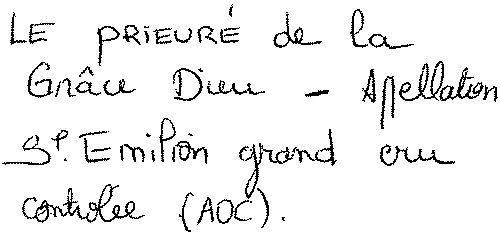 LE PRIEURÉ de la
Grâce Dieu - Apellation
St. Emilion grand cru
controlée (AOC).